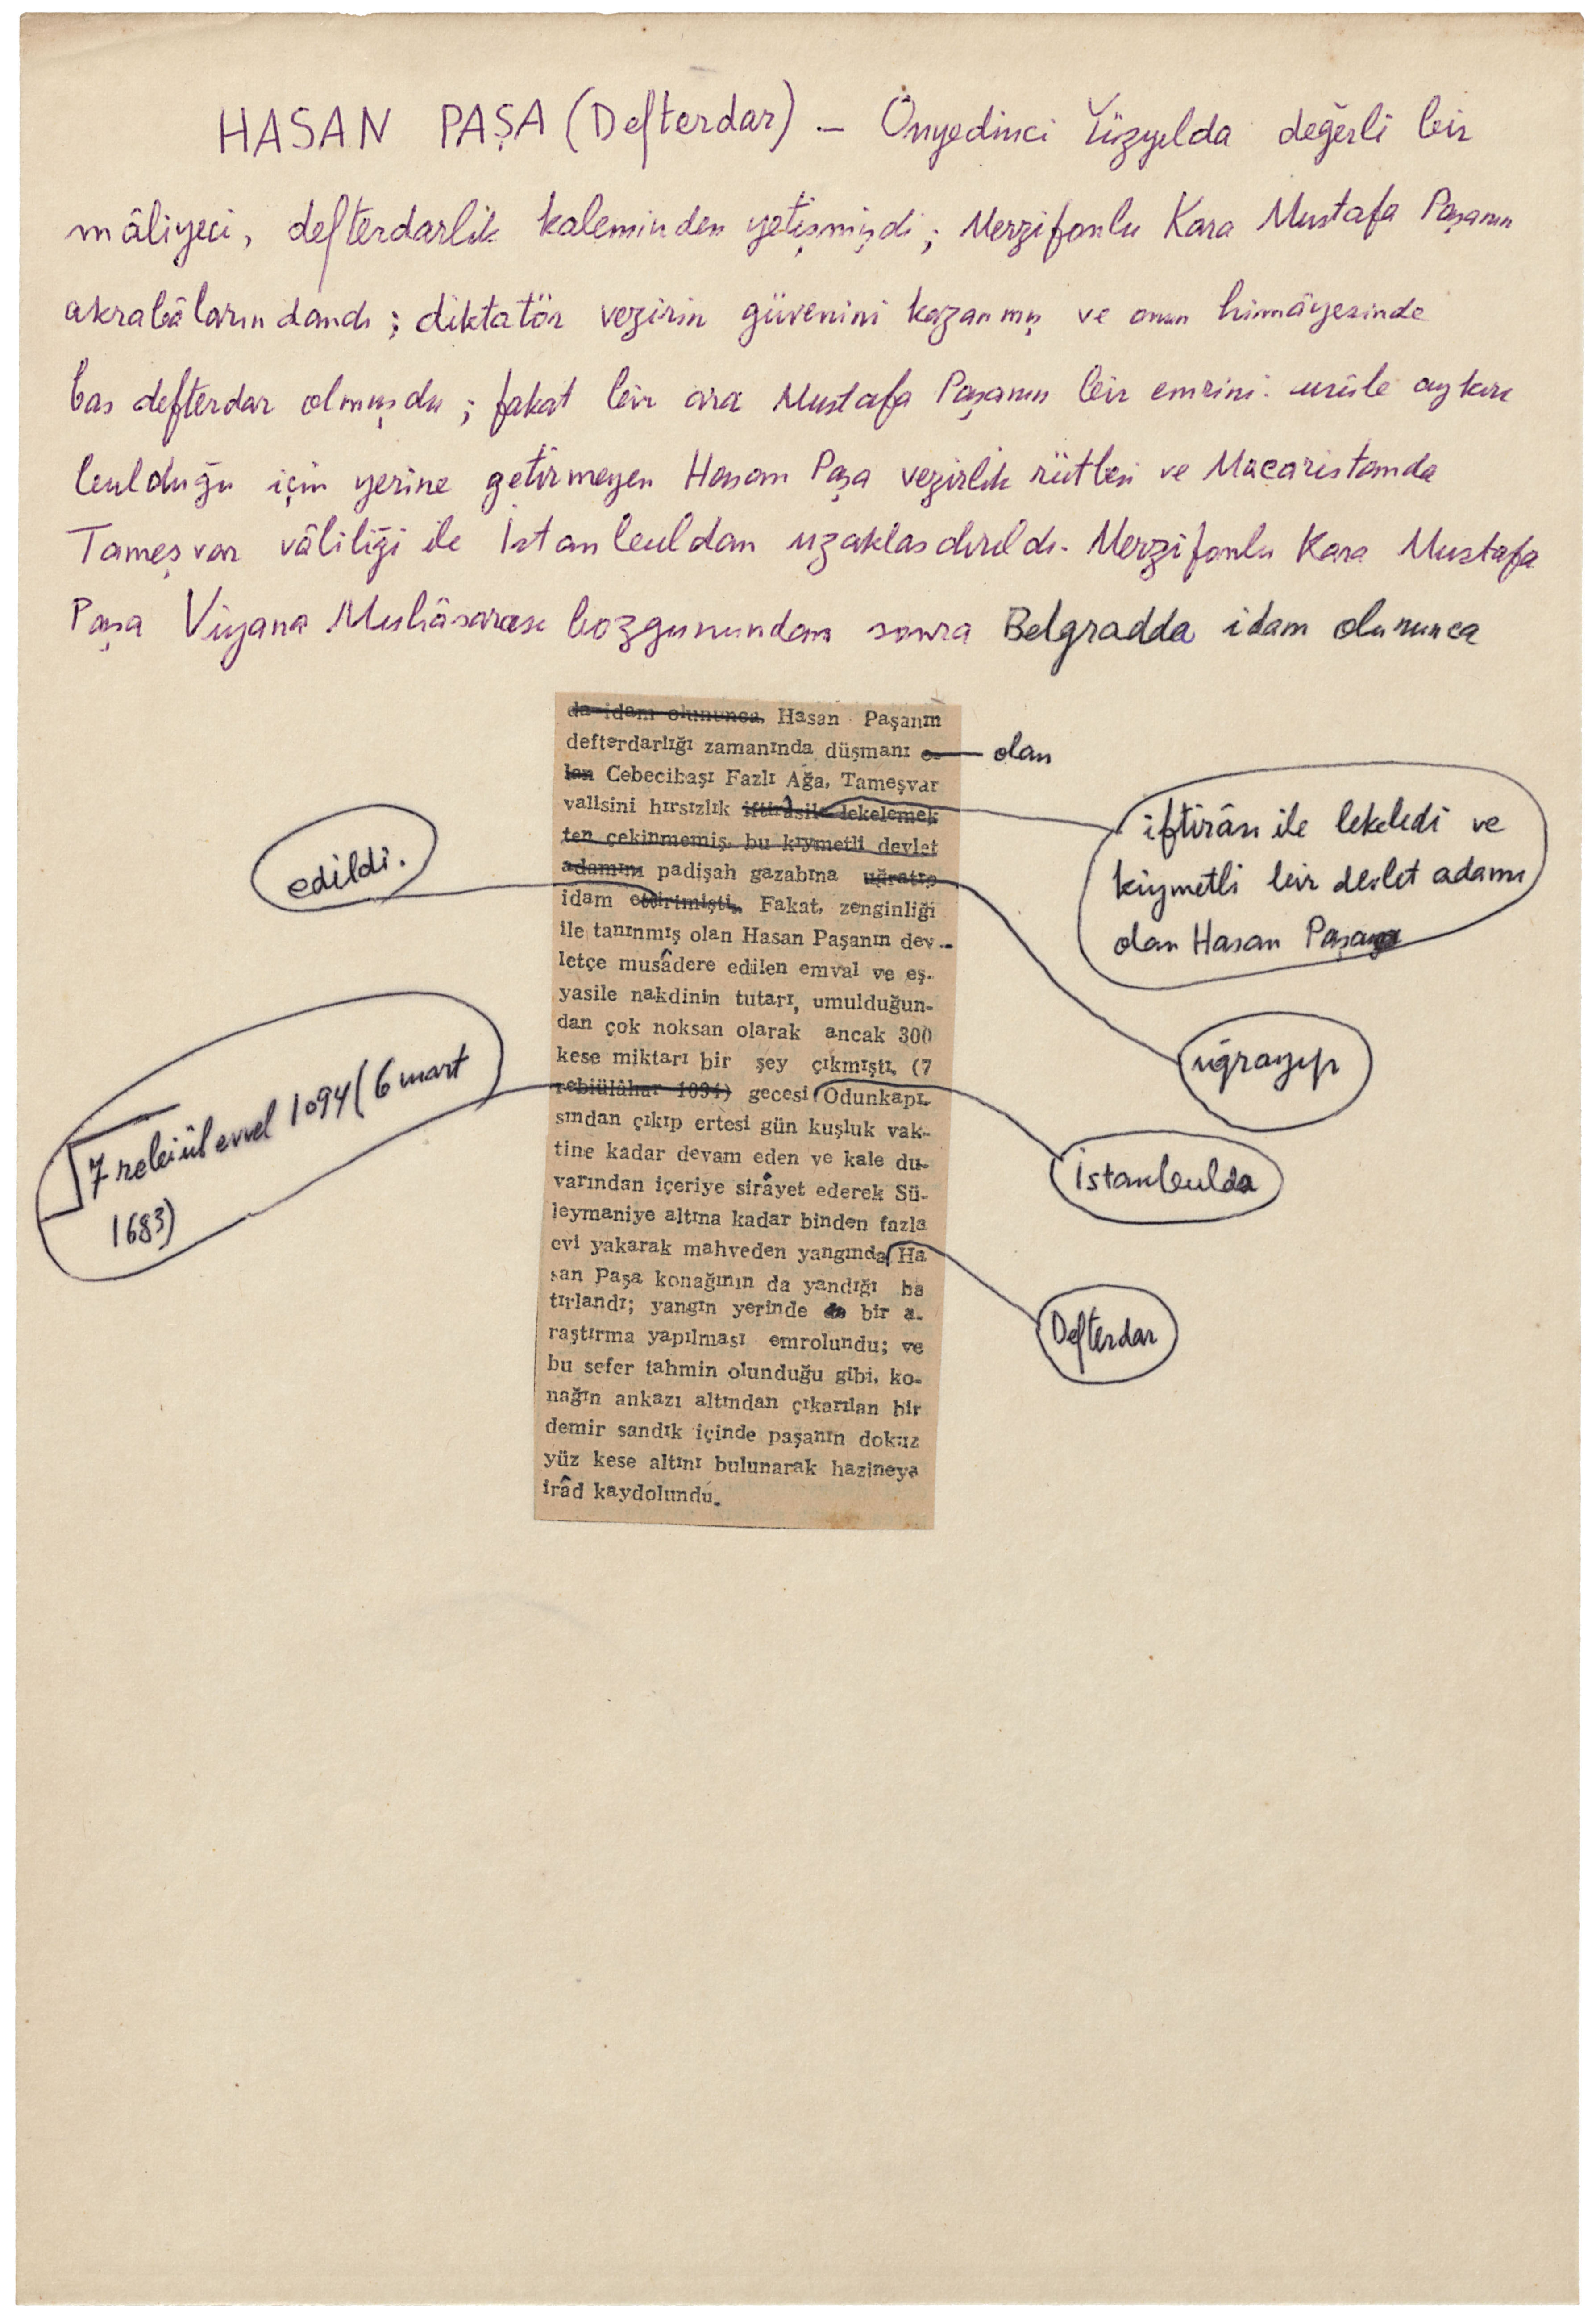 HASAN PAŞA (Defterdar) — Onyedinci Yüzyılda değerli bir
mâliyeci, defterdarlık kaleminden yetişmişdi; Merzifonlu Kara Mustafa Paşanın
akrabâlarındandı; diktatör vezirin güvenini kazanmış ve onun himâyesinde
baş defterdar olmuşdu; fakat bir ara Mustafa Paşanın bir emrini usûle aykırı
bulduğu için yerine getirmeyen Hasan Paşa vezirlik rütbesi ve Macaristanda
Tameşvar vâliliği ile İstanbuldan uzaklaşdırıldı. Merzifonlu Kara Mustafa
Paşa Viyana Muhâsarası bozgunundan sonra Belgradda idam olununca
da idam olununca, Hasan Paşanın
defterdarlığı zamanında düşmanı o-
olan
lan Cebecibaşı Fazlı Ağa, Tameşvar
valisini hırsızlık iftirâsile lekelemek
iftirâsı ile lekeledi ve
kıymetli bir devlet adamı
olan Hasan Paşa
ten çekinmemiş, bu kıymetli devlet
adamını padişah gazabına uğratıp
uğrayıp
idam ettirimişti. Fakat, zenginliği
edildi.
ile tanınmış olan Hasan Paşanın dev-
letçe musâdere edilen emval ve eş-
yasile nakdinin tutarı, umulduğun-
dan çok noksan olarak ancak 300
kese miktarı bir şey çıkmıştı. (7
rebiülâhar 1094) gecesi Odunkapı-
7 rebiülevvel 1094 (6 mart
1683)
İstanbulda
sından çıkıp ertesi gün kuşluk vak-
tine kadar devam eden ve kale du-
varından içeriye sirâyet ederek Sü-
leymaniye altına kadar binden fazla
evi yakarak mahveden yangında Ha
Defterdar
san Paşa konağının da yandığı ha
tırlandı; yangın yerinde de bir a-
raştırma yapılması emrolundu; ve
bu sefer tahmin olunduğu gibi, ko-
nağın ankazı altından çıkarılan bir
demir sandık içinde paşanın dokuz
yüz kese altını bulunarak hazineye
irâd kaydolundu.